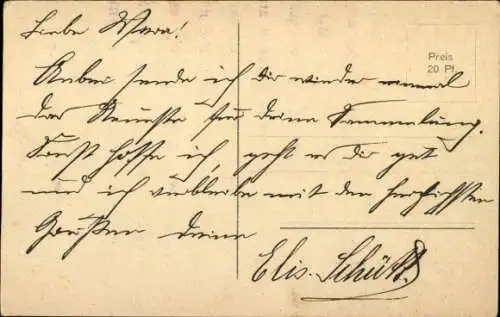 Liebe Wera!
Preis
20 Pf.
Anbei sende ich Dir wieder einmal
das Neueste für deine Sammlung.
Sonst hoffe ich, geht es Dir gut
und ich verbleibe mit den herzlichsten
Grüßen deine
Elis. Schütt.